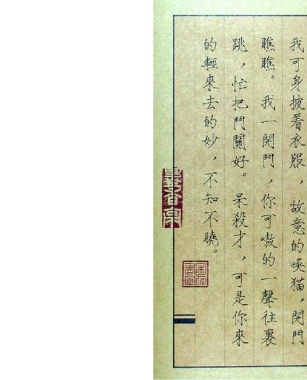 我可身披着衣服，故意的呼猫，開門
瞧瞧。我一開門，你可嗷的一聲往裏
跳，忙把門關好。呆殺才，可是你來
的輕來去的妙，不知不曉。